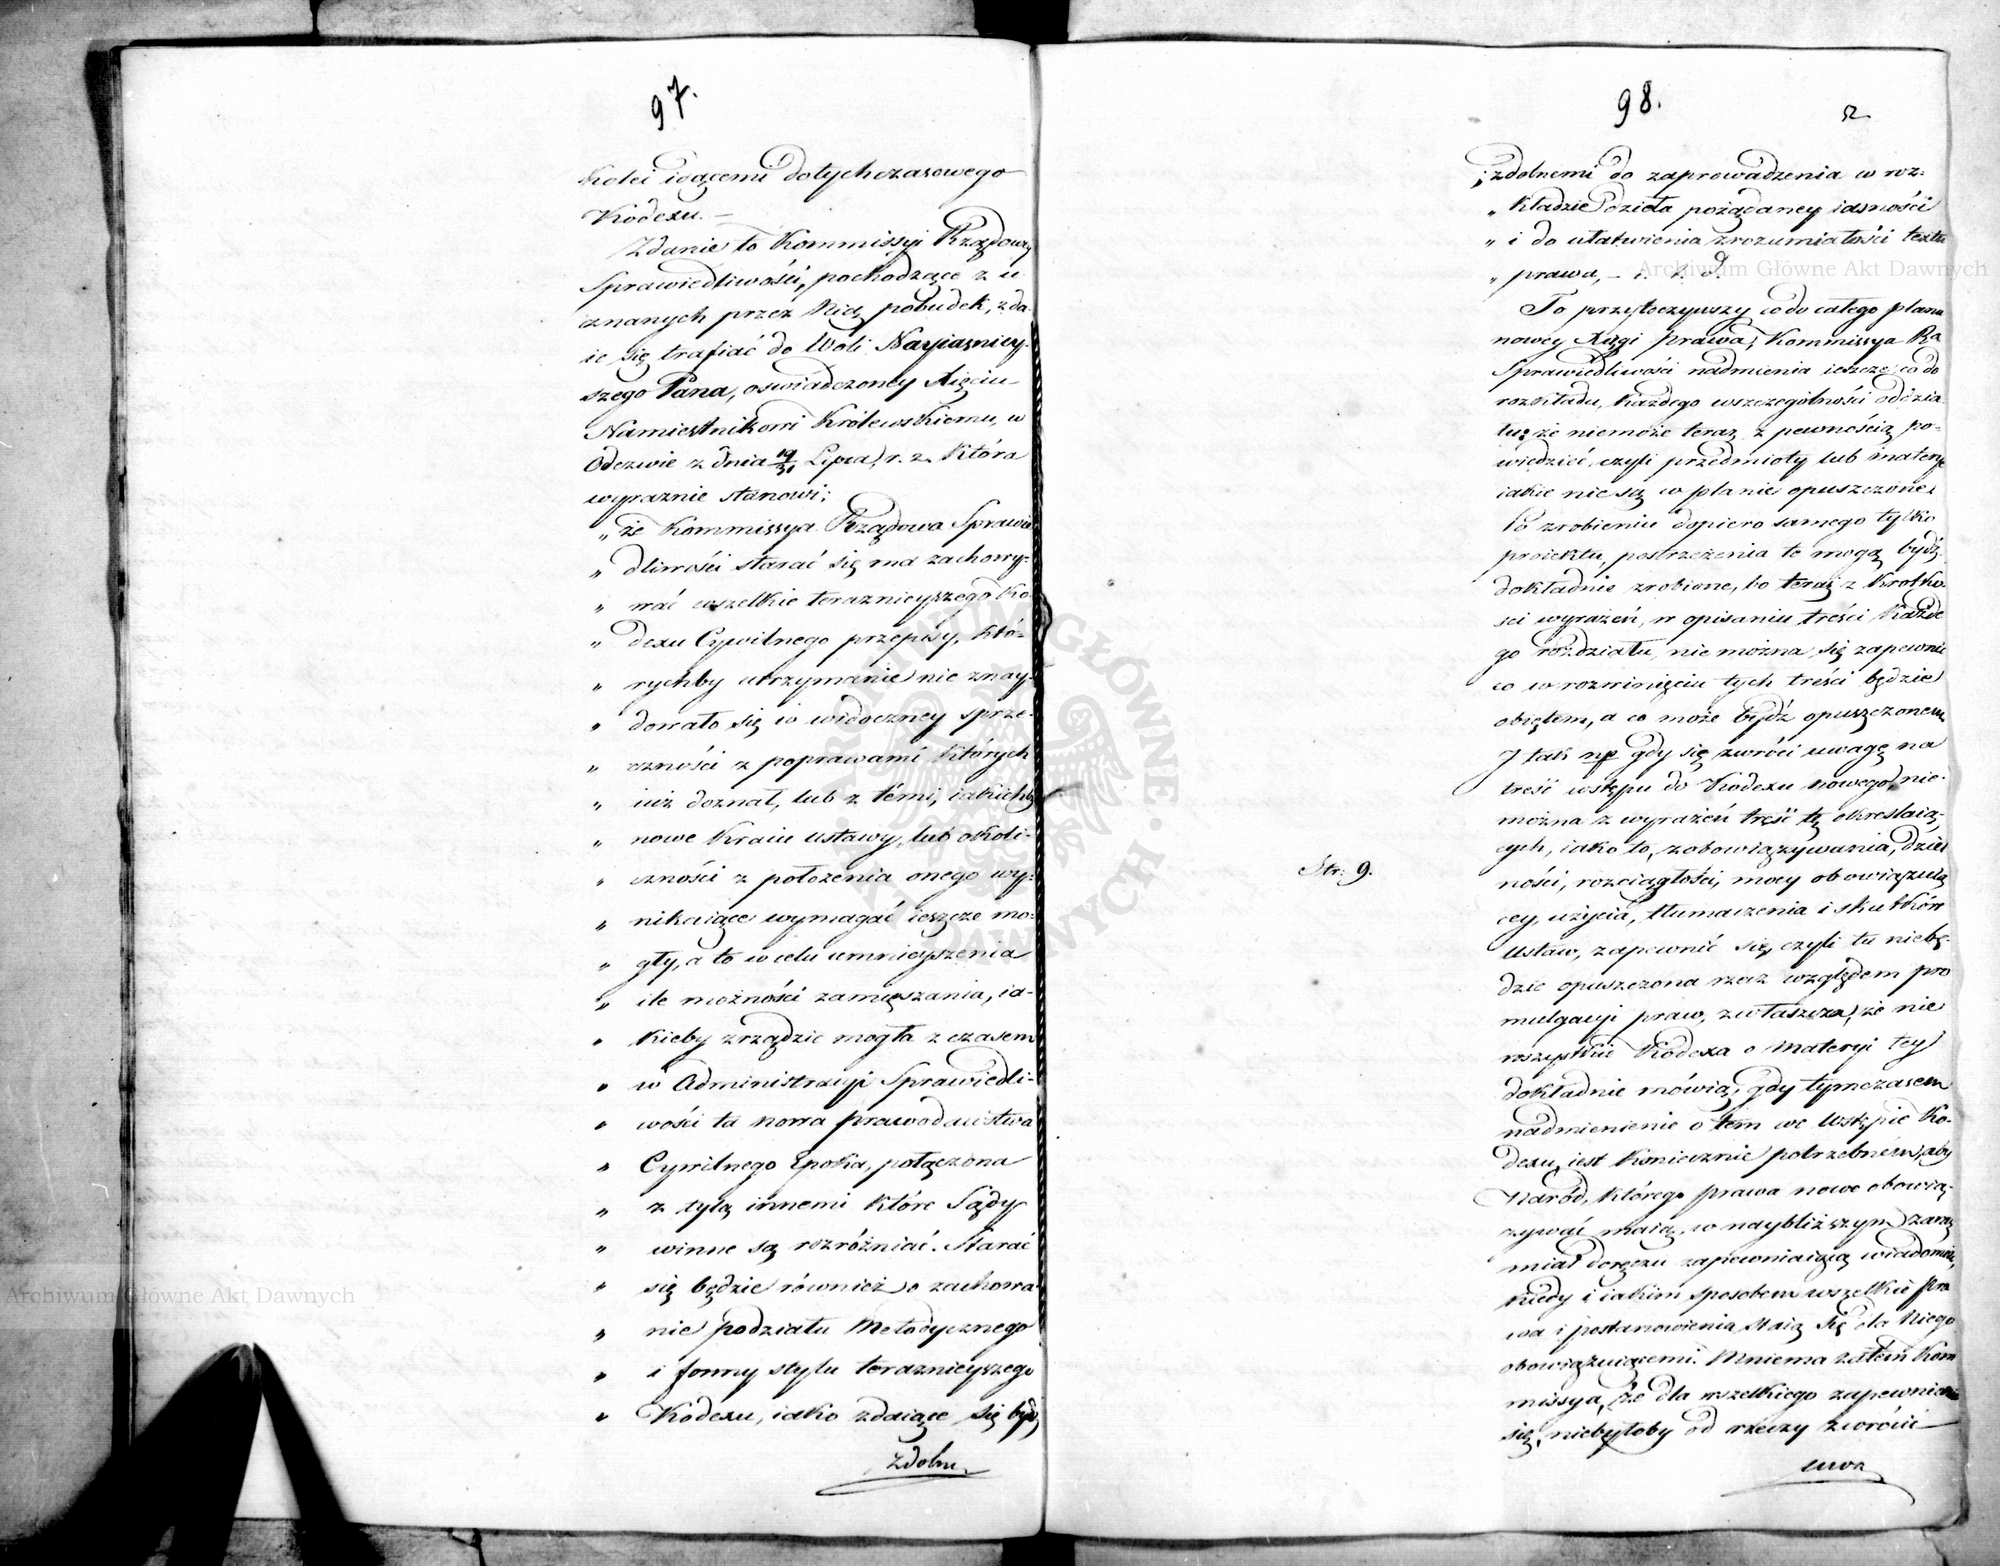 97.
Kolei idącemi dotychczasowego
Kodexu. —
Zdanie to Kommissyi Rządowey
Sprawiedliwości, pochodzące z u
znanych przez Nią pobudek, zda
ie się trafiać do Woli Nayiaśniey-
szego Pana, oświadczoney Xięciu
Namiestnikowi Królewskiemu, w
Odezwie z dnia 19/31 Lipca, r. z. Która
wyraznie stanowi;
„ że Kommissya Rządowa Sprawie
„ dliwości starać się ma zachowy-
„ wać wszelkie teraznieyszego Ko-
„ dexu Cywilnego przepisy, któ-
„ rychby utrzymanie nie znay-
„ dowało się w widoczney sprze-
„ czności z poprawami których
„ iuż doznał, lub z témi, iakichby
„ nowe Kraiu ustawy, lub okoli-
„ czności z położenia onego wy-
„ nikaiące wymagać ieszcze mo-
„ gły, a to w celu umnieyszenia
„ ile możności zamięszania, ia-
„ kieby zrządzić mogła z czasem
„ w Administracyi Sprawiedli-
„ wości ta nowa prawodawstwa
„ Cywilnego Epoka, połączona
„ z tylą innemi które Sądy
„ winne są rozróżniać. Starać
„ się będzie również o zachowa-
„ nie podziału Metodycznego
„ i formy stylu teraznieyszego
„ Kodexu, iako zdaiące się bydź
zdolne
98.
„ zdolnemi do zaprowadzenia w roz-
„ kładzie dzieła pożądaney iasności
„ i do ułatwienia zrozumiałości textu
„ prawa, — i. t. d.
To przytoczywszy co do całego planu
nowey Xięgi prawa, Kommissya Rą
Sprawiedliwości nadmienia ieszcze co do
rozkładu, każdego wszczególności oddzia
łu, że niemoże teraz z pewnością po-
wiedzieć, czyli przedmioty lub materye
iakie nie są w planie opuszczone.
Po zrobieniu dopiero samego tylko
proiektu, postrzeżenia te mogą bydź
dokładnie zrobione, bo teraz z krótko-
ści wyrażeń, w opisaniu treści każde
go rozdziału, nie można się zapewnić
co w rozwinięciu tych treści będzie
obiętem, a co może bydź opuszczonem
I tak np gdy się zwróci uwagę na
treść wstępu do Kodexu nowego, nie-
można z wyrażeń treść tę okreslaią-
cych, iako to, zobowiązywania, dziel
ności, rozciągłości, mocy obowiązuią
Str: 9.
cey, użycia, tłumaczenia i skutków
Ustaw, zapewnić się, czyli tu niebę-
dzie opuszczona rzecz względem pro
mulgacyi praw, zwłaszcza, że nie
wszystkie Kodexa o materyi tey
dokładnie mówią, gdy tymczasem
nadmienienie o tém we Wstępie Ko-
dexu, iest koniecznie potrzebném, aby
Naród, którego prawa nowe obowią-
zywać maią, w naybliższym zaraz
miał doręczu zapewniaiącą wiadomość,
kiedy i iakim sposobem wszelkie pra
wa i postanowienia staią się dla niego
obowiązuiącemi. Mniema zatém Kom
missya, że dla wszelkiego zapewnienia
się, niebyłoby od rzeczy zwrócić
uwa
ARCHIWUM GŁÓWNE AKT DAWNYCH
Archiwum Główne Akt Dawnych
Archiwum Główne Akt Dawnych